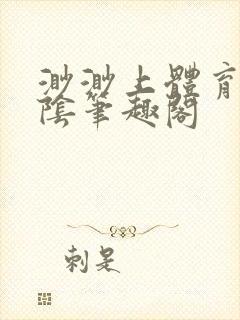 渺渺上體育
陰筆趣閣
刺是